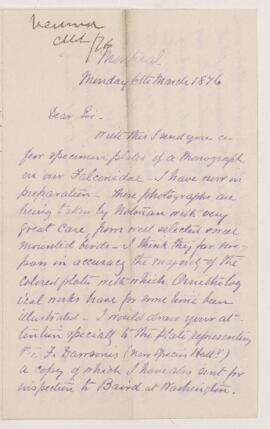 Vennor
Oct /76
Montreal
Monday 6th March 1876
Dear Sir -
With this I send you a
few specimen plates of a Monograph
on our Falconidae - I have now in
preparation - These photographs are
being taken by Notman with very
great care, from well selected and
mounted birds - I think they far sur-
pass in accuracy the majority of the
colored plates with which Ornitholog-
ical works have for some time been
illustrated - I would draw your at-
tention specially to the plate representing
F.
a copy of which I have also sent for
inspection to Baird at Washington.